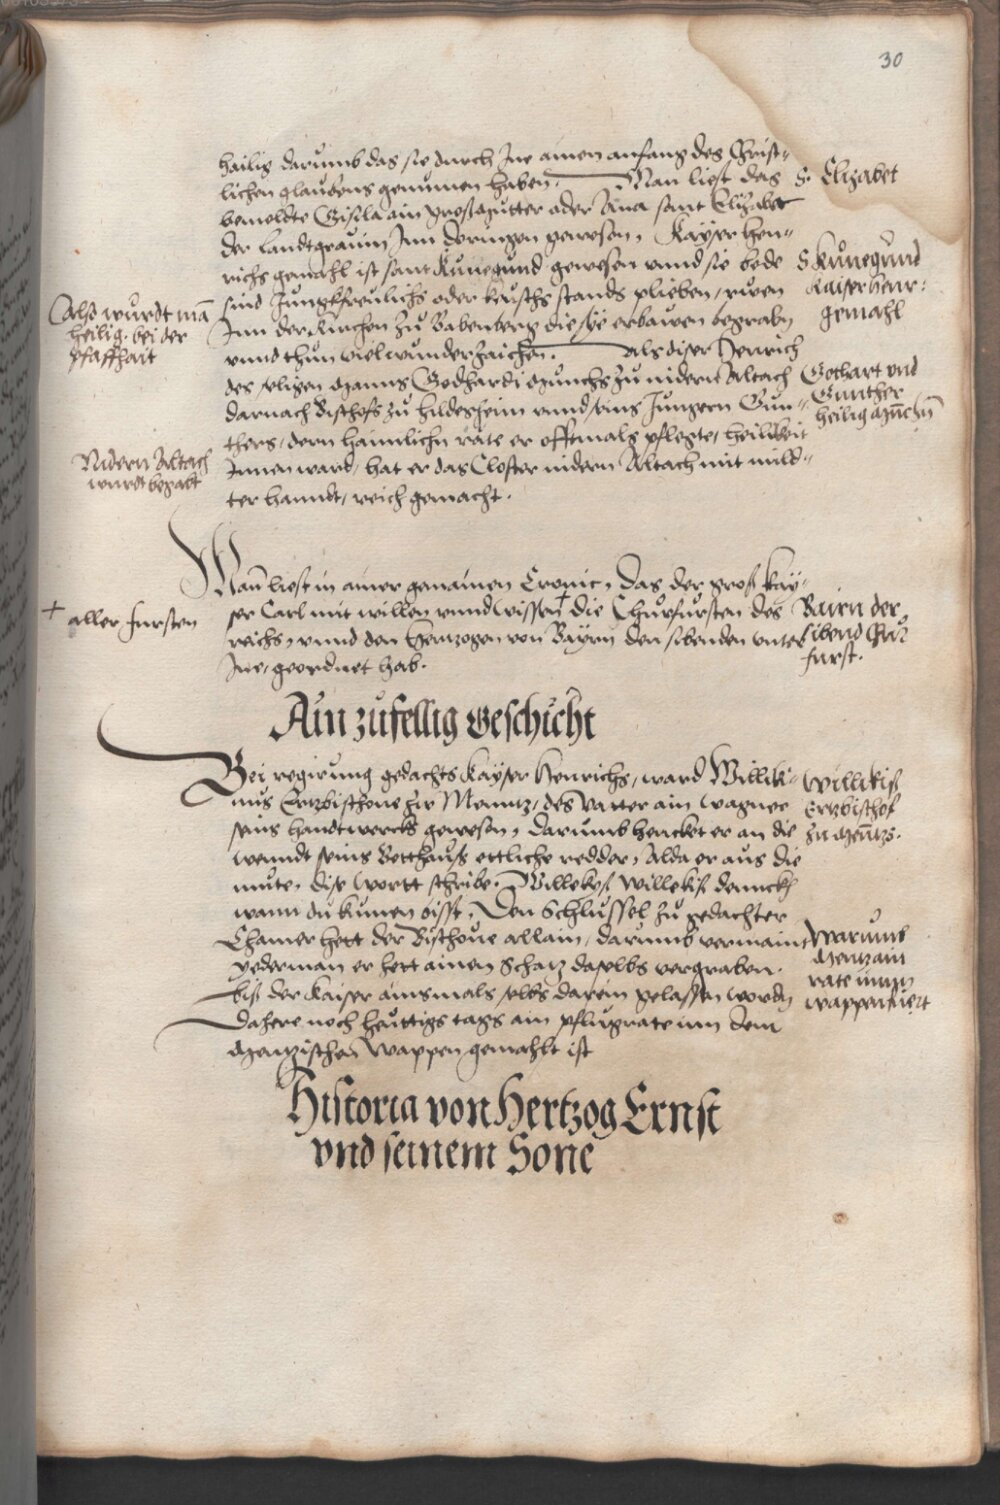 30
hailig darumb das sie durch Jne ainen anfang des Christ-
lichen glaubens genumen haben. Man liest das
bemeldte Gisela ain großmutter oder Ana sant Elizabet
der landtgrauin Jnn Doringen gewesen, Kayser Hen-
richs gemahl ist sant Kunegund gewesen vnnd sie bede
sind Jungkfreulichs oder keuschs stands plieben, ruen
Jnn der Kirchen zu Babenberg die sye erbawen begrabn
vnnd thun viel wunderzaichen. Als diser Henrich
des seligen manns Godhardi munchs zu nidern Altach
darnach Bischofs zu Hildesheim vnnd seins Jungern Gun-
thers, dern haimlichn rate er offtmals pflegte, heilikeit
Jnnen ward, hat er das Closter nidern Altach mit mild-
ter hanndt, reich gemacht.
S. Elizabet
S Kunegund
kaiser henr:
gemahl
Gothart vnd
Gunther
heilig munchn
Also wurdt mā
heilig bei der
pfaffhait
Nidern Altach
wurdt begabt
Man liest in ainer genainen Cronic, das der groß Kay-
ser Carl mit willen vnnd wissen + die Churfursten des
reichs, vnnd den Hertzogen von Bayrn den sibenden vnter
Jne, geordnet hab.
+ aller fursten
Bairn der
sibend Chur
furst.
Ain zufellig Geschicht
Bei regirung gedachts Kayser Henrichs, ward Willik-
nus Ertzbischoue zw Menntz, des Vatter ain wagner
seins handtwercks gewesen, darumb hencket er an die
wenndt seins Betthauß ettliche redder, Alda er aus die
mute, dise wortt schribe. Willekiß Willekiß denncke
wann du kumen bisst, Den Schlussel zu gedachter
Chamer hett der Bischoue allain, darumb vermaint
yederman er hett ainen Schatz daselbs vergraben.
biß der Kaiser ainsmals selbs darein gelassen worden
Dahere noch heuttigs tags ain pflugrate inn dem
Mentzischen wappen gemahlt ist
Willikiß
Ertzbischof
zu Mentz.
Warumb
Mentz ain
rate inn
wappen fuert
Historia von Hertzog Ernst
vnd seinem Sone